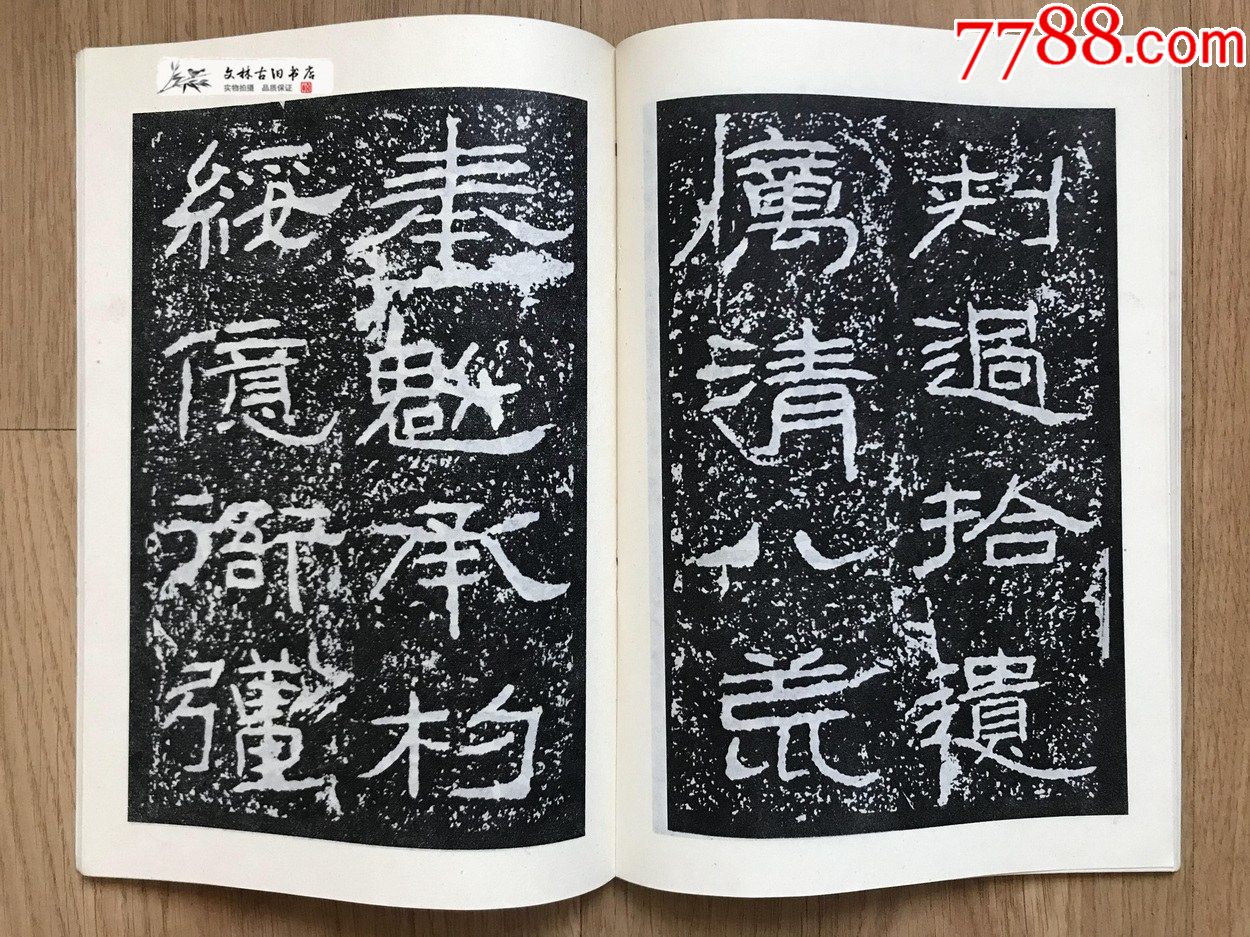 7788.com
文林古旧书店
实物拍摄 品质保证
刾過拾遺
厲清八荒
奉魁承杓
綏億衙彊